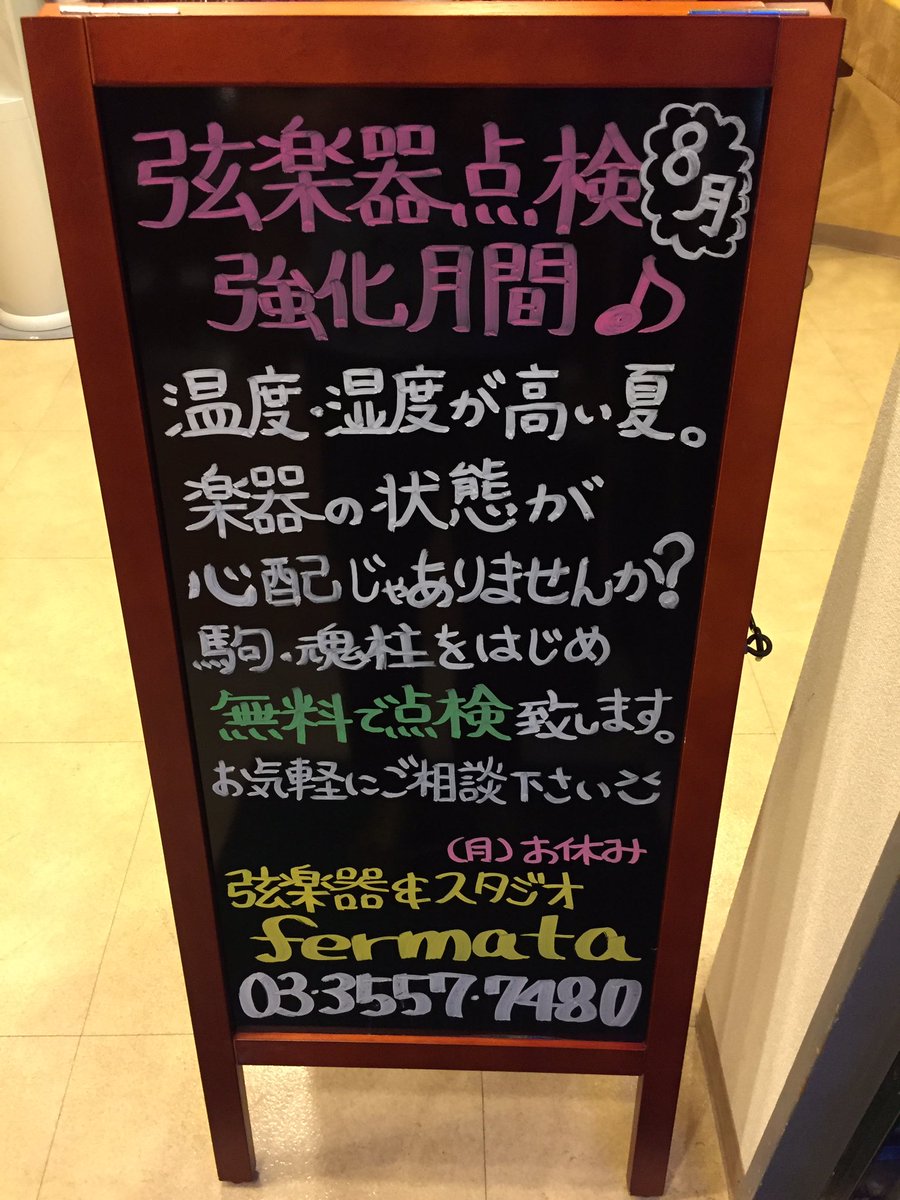 弦楽器点検
8月
強化月間♪
温度・湿度が高い夏。
楽器の状態が
心配じゃありませんか?
駒・魂柱をはじめ
無料で点検致します。
お気軽にご相談下さい
(月)お休み
弦楽器&スタジオ
fermata
03-3557-7480